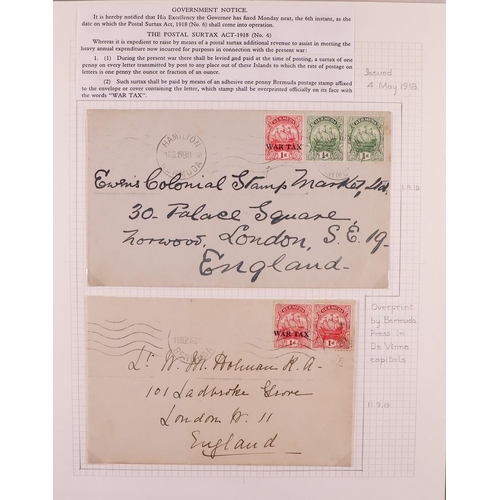 GOVERNMENT NOTICE.
It is hereby notified that His Excellency the Governor has fixed Monday next, the 6th instant, as the
date on which the Postal Surtax Act, 1918 (No. 6) shall come into operation.
THE POSTAL SURTAX ACT-1918 (No. 6)
Whereas it is expedient to raise by means of a postal surtax additional revenue to assist in meeting the
heavy annual expenditure now incurred for purposes in connection with the present war:
1. (1) During the war there shall be levied and paid at the time of posting, a surtax of one
penny on every letter transmitted by post to any place out of these Islands to which the rate of postage on
letters is one penny the ounce or fraction of an ounce.
(2) Such surtax shall be paid by means of an adhesive one penny Bermuda postage stamp affixed
to the envelope or cover containing the letter, which stamp shall be overprinted officially on its face with
the words "WAR TAX".
Issued
4 May 1918.
HAMILTON
BERMUDA
BERMUDA BERMUDA BERMUDA
WAR TAX
Ewen's Colonial Stamp Market, Ltd.
30. Palace Square,
Norwood, London, S.E. 19.
England.
Overprint
by Bermuda
Press in
De Vinne
capitals
BERMUDA BERMUDA
WAR TAX
Lt. W. M. Holman R.A.
101 Ladbroke Grove
London W. 11
England